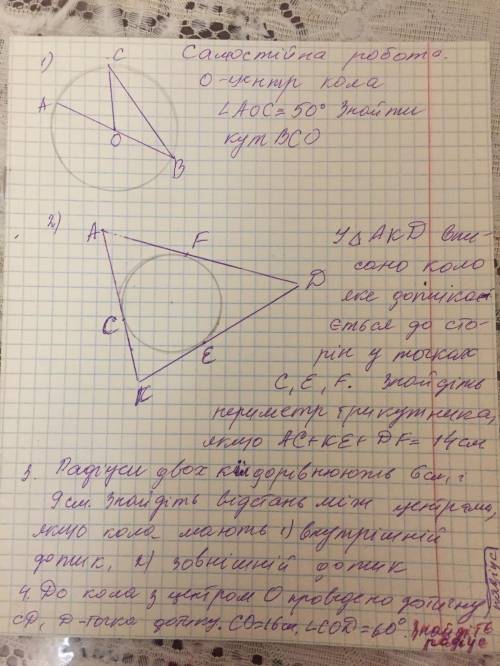 Самостійна робота.
1)
C
A
O
B
О-центр кола
∠AOC=50° Знайти
кут BCO
2)
A
F
D
C
E
K
У △ AKD впи-
сано коло
яке дотика
ється до сто-
рін у точках
C, E, F. Знайдіть
периметр трикутника,
якщо AC+KE+DF=14см
3. Радіуси двох кіл дорівнюють 6см, і
9см. Знайдіть відстань між центрами,
якщо кола мають 1) внутрішній
дотик, 2) зовнішній дотик
4. До кола з центром О проведено дотичну
CD, D-точка дотику. CO=16см, ∠COD=60°. Знайдіть
радіус
радіус